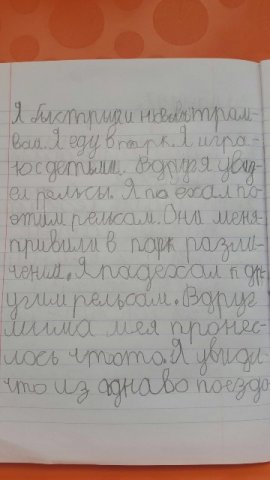 Я быстрый и новый трам-
вай. Я еду в парк. Я игра-
ю с детьми. Вдруг я увид-
ел рельсы. Я поехал по
этим рельсам. Они меня
привили в парк разли-
чений. Я падехал п др-
угим рельсам. Вдруг
мима мея пронес-
лось чтото. Я увиди
что из аднаво поездо